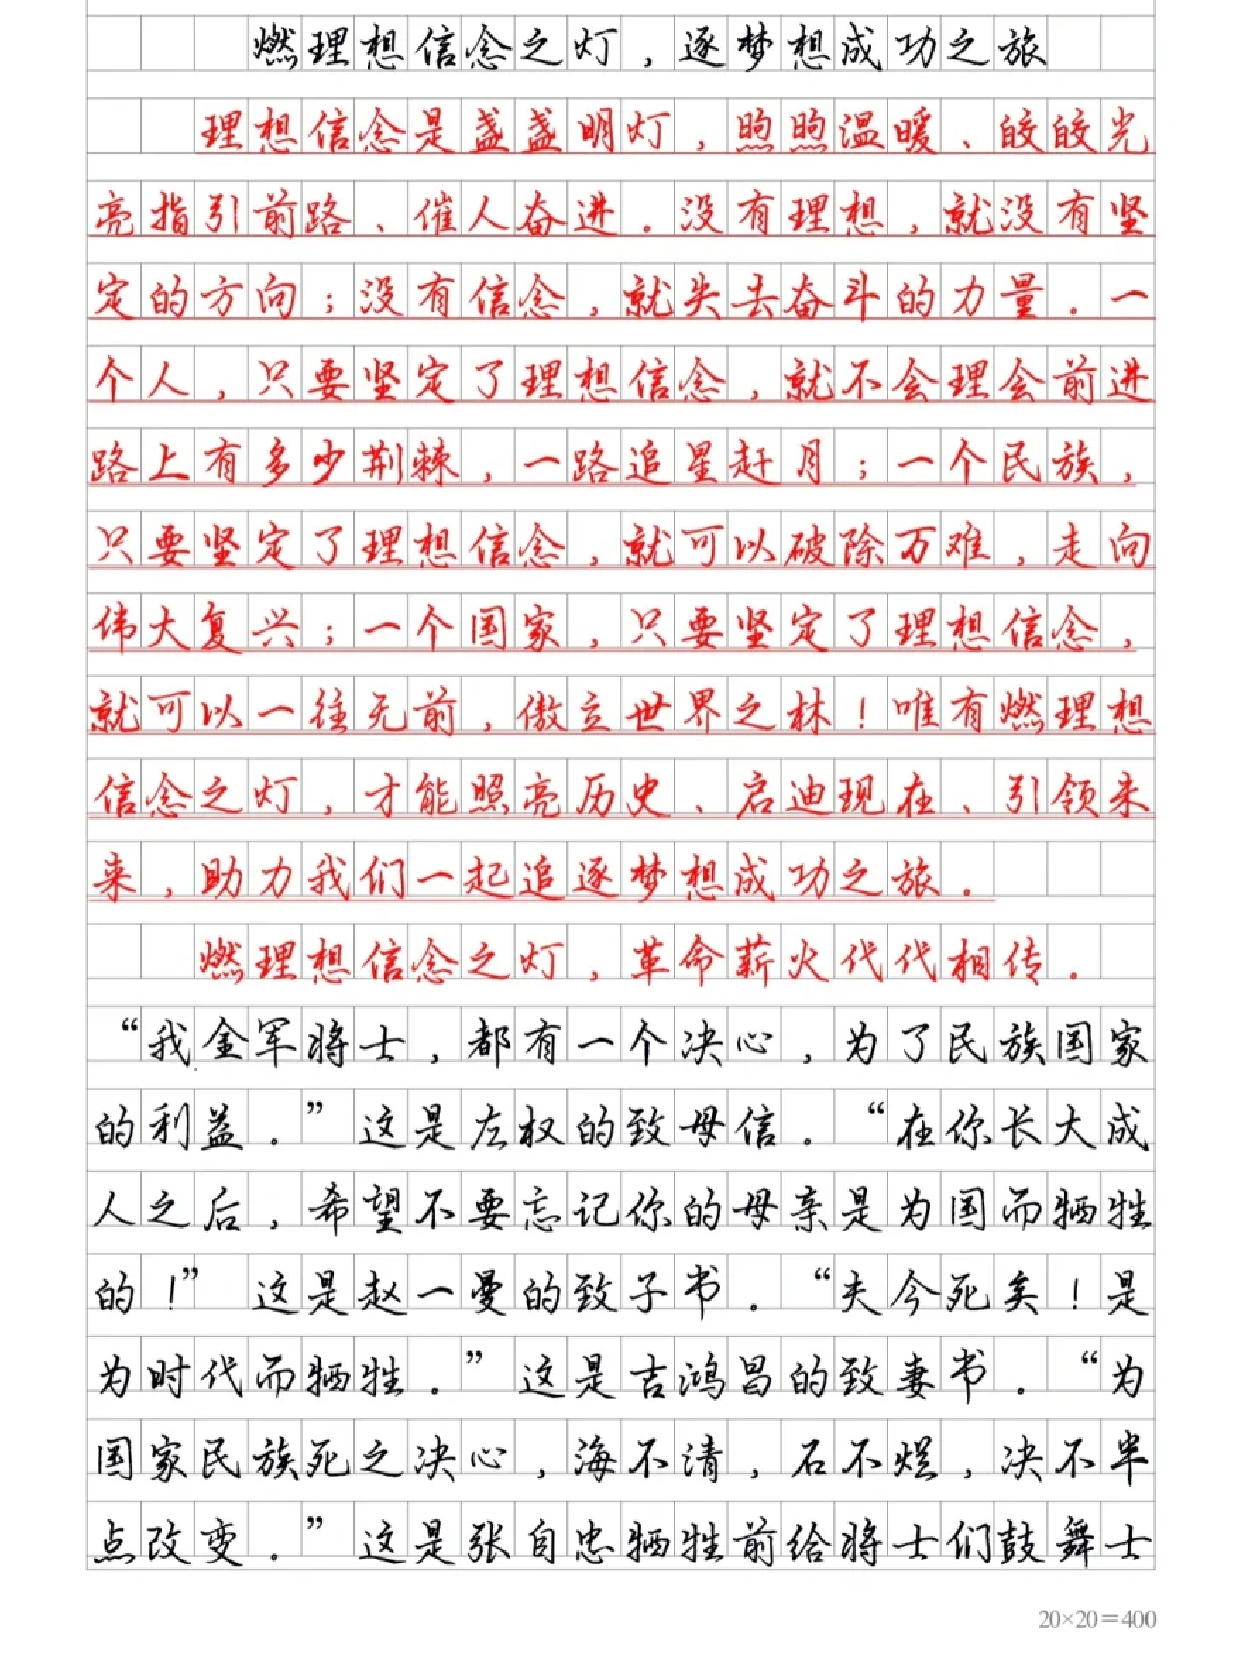 燃理想信念之灯，逐梦想成功之旅
理想信念是盏盏明灯，煦煦温暖、皎皎光
亮指引前路、催人奋进。没有理想，就没有坚
定的方向；没有信念，就失去奋斗的力量。一
个人，只要坚定了理想信念，就不会理会前进
路上有多少荆棘，一路追星赶月；一个民族，
只要坚定了理想信念，就可以破除万难，走向
伟大复兴；一个国家，只要坚定了理想信念，
就可以一往无前，傲立世界之林！唯有燃理想
信念之灯，才能照亮历史、启迪现在、引领未
来，助力我们一起追逐梦想成功之旅。
燃理想信念之灯，革命薪火代代相传。
“我全军将士，都有一个决心，为了民族国家
的利益。”这是左权的致母信。“在你长大成
人之后，希望不要忘记你的母亲是为国而牺牲
的！”这是赵一曼的致子书。“夫今死矣！是
为时代而牺牲。”这是吉鸿昌的致妻书。“为
国家民族死之决心，海不清，石不烂，决不半
点改变。”这是张自忠牺牲前给将士们鼓舞士
20×20=400